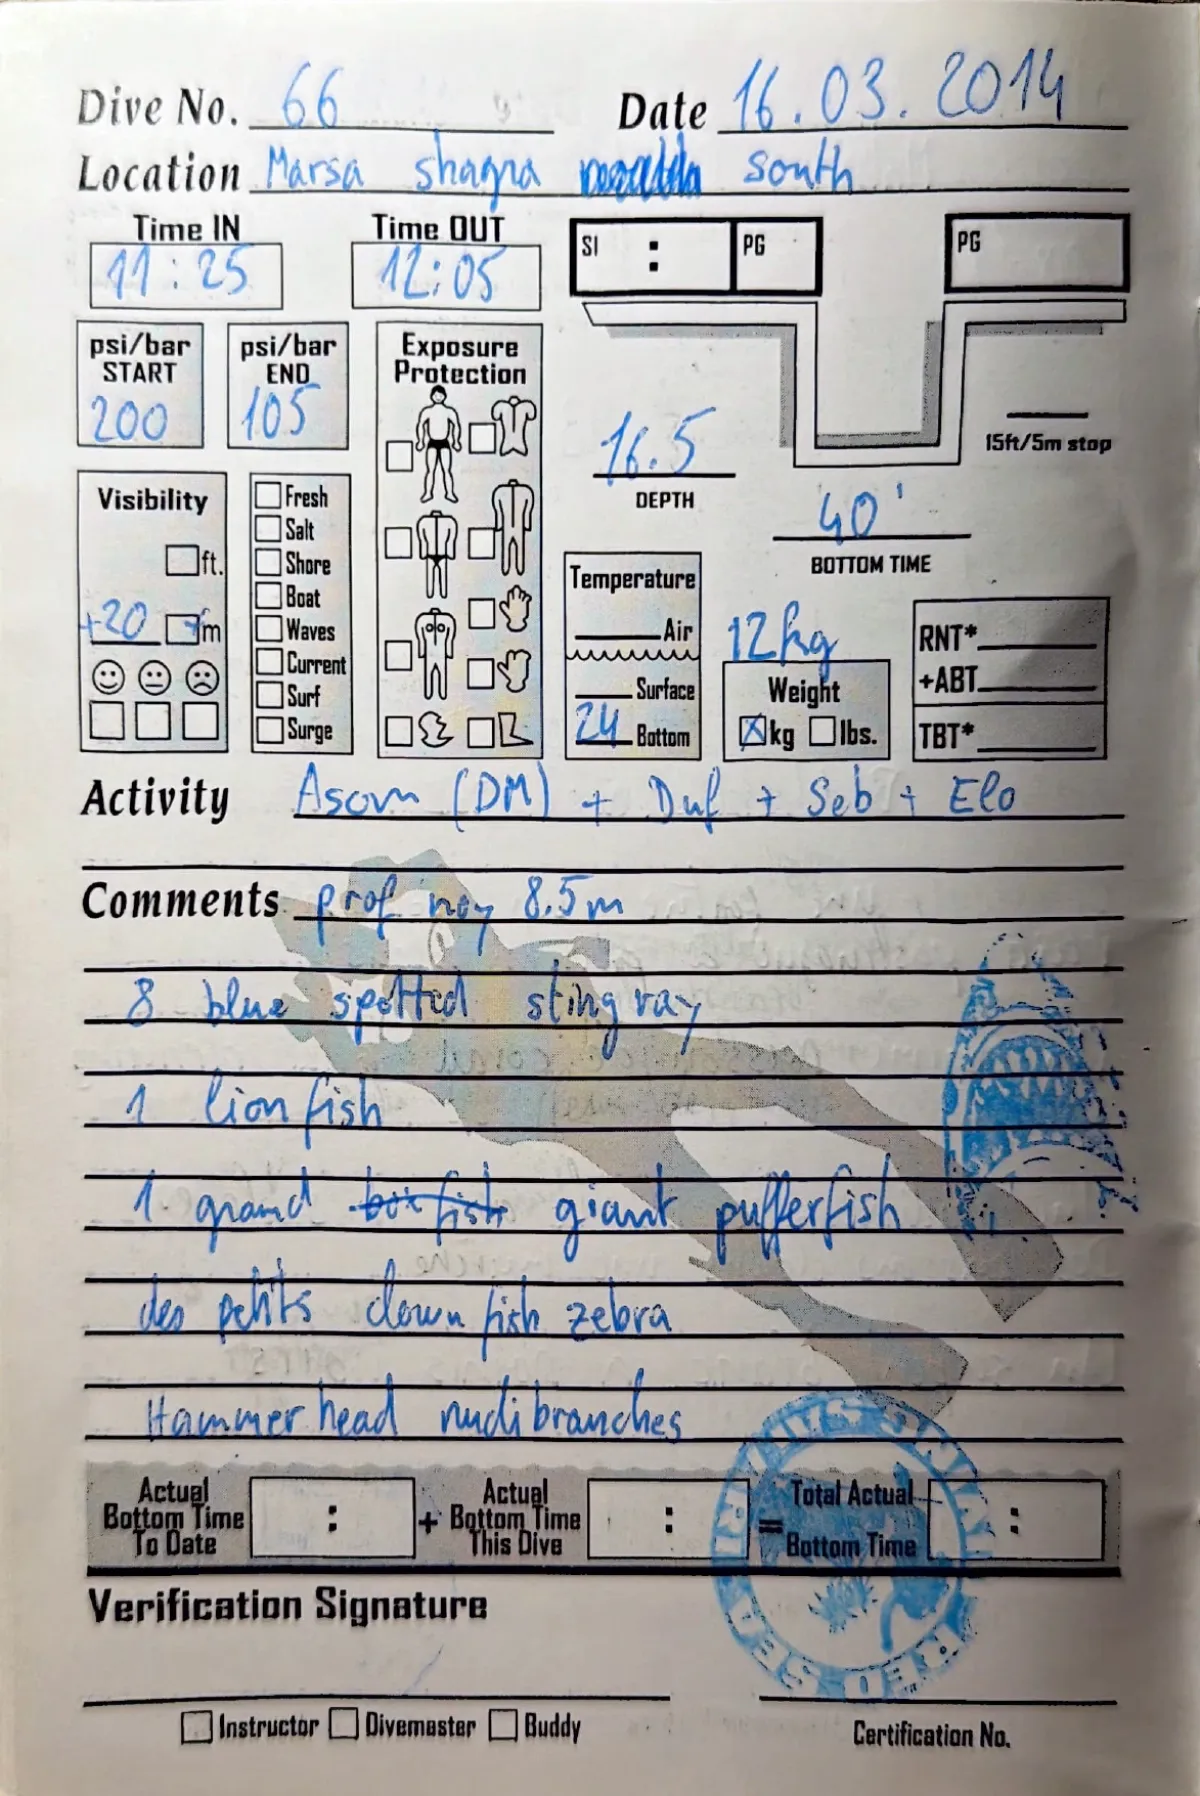 Dive No. 66 Date 16.03.2014
Location Marsa shagra south
Time IN Time OUT SI : PG PG
11:25 12:05
psi/bar START psi/bar END Exposure Protection
200 105
16.5 15ft/5m stop
DEPTH
40'
BOTTOM TIME
Visibility
ft.
+20 m
Fresh
Salt
Shore
Boat
Waves
Current
Surf
Surge
Temperature
Air
Surface
24 Bottom
12kg
Weight
kg lbs.
RNT*
+ABT
TBT*
Activity (DM) + Duf + Seb + Elo
Comments prof moy 8.5m
8 blue spotted sting ray
1 lion fish
1 grand box fish giant pufferfish
des petits clown fish zebra
Hammer head nudibranches
Actual Bottom Time To Date : + Actual Bottom Time This Dive : = Total Actual Bottom Time :
Verification Signature
Instructor Divemaster Buddy Certification No.
RED SEA